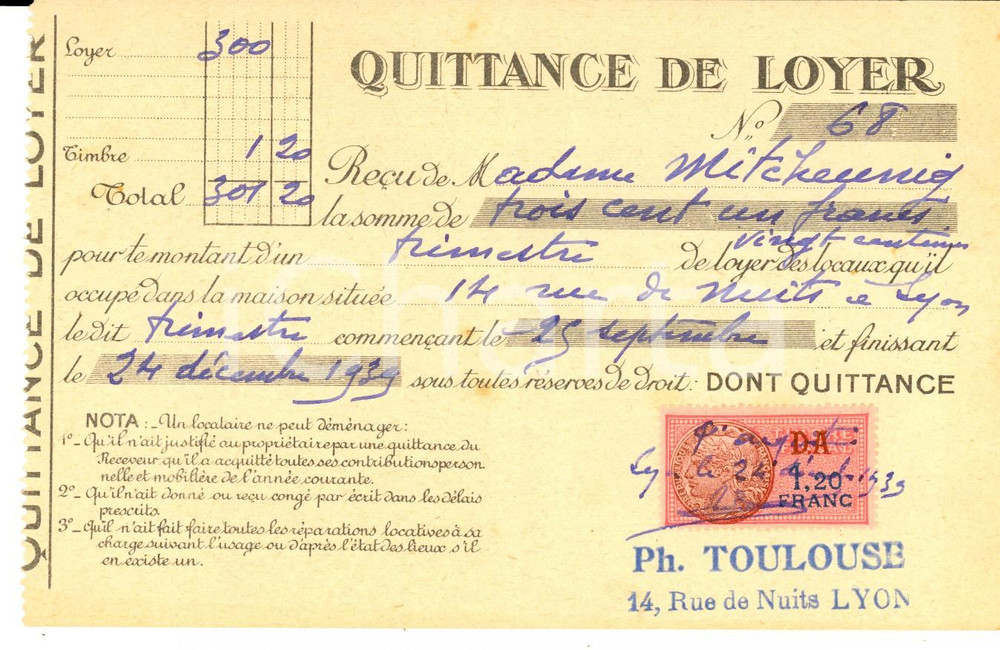 QUITTANCE DE LOYER
Loyer 300
Timbre 1 20
Total 301 20
QUITTANCE DE LOYER
No 68
Reçu de Madame
la somme de trois cent un francs
vingt centimes
pour le montant d'un trimestre de loyer des locaux qu'il
occupe dans la maison située 14 rue de Nuits à Lyon
ledit trimestre commençant le 25 septembre et finissant
le 24 décembre 1939 sous toutes réserves de droit: DONT QUITTANCE
NOTA :_ Un locataire ne peut déménager:
1º_ Qu'il n'ait justifié au propriétaire par une quittance du
Receveur qu'il a acquitté toutes ses contributions person
nelle et mobilière de l'année courante.
2º_ Qu'il n'ait donné ou reçu congé par écrit dans les délais
prescrits.
3º_ Qu'il n'ait fait faire toutes les réparations locatives à sa
charge suivant l'usage ou d'après l'état des lieux s'il
en existe un.
DA
1,20
FRANC
Ph. TOULOUSE
14, Rue de Nuits LYON